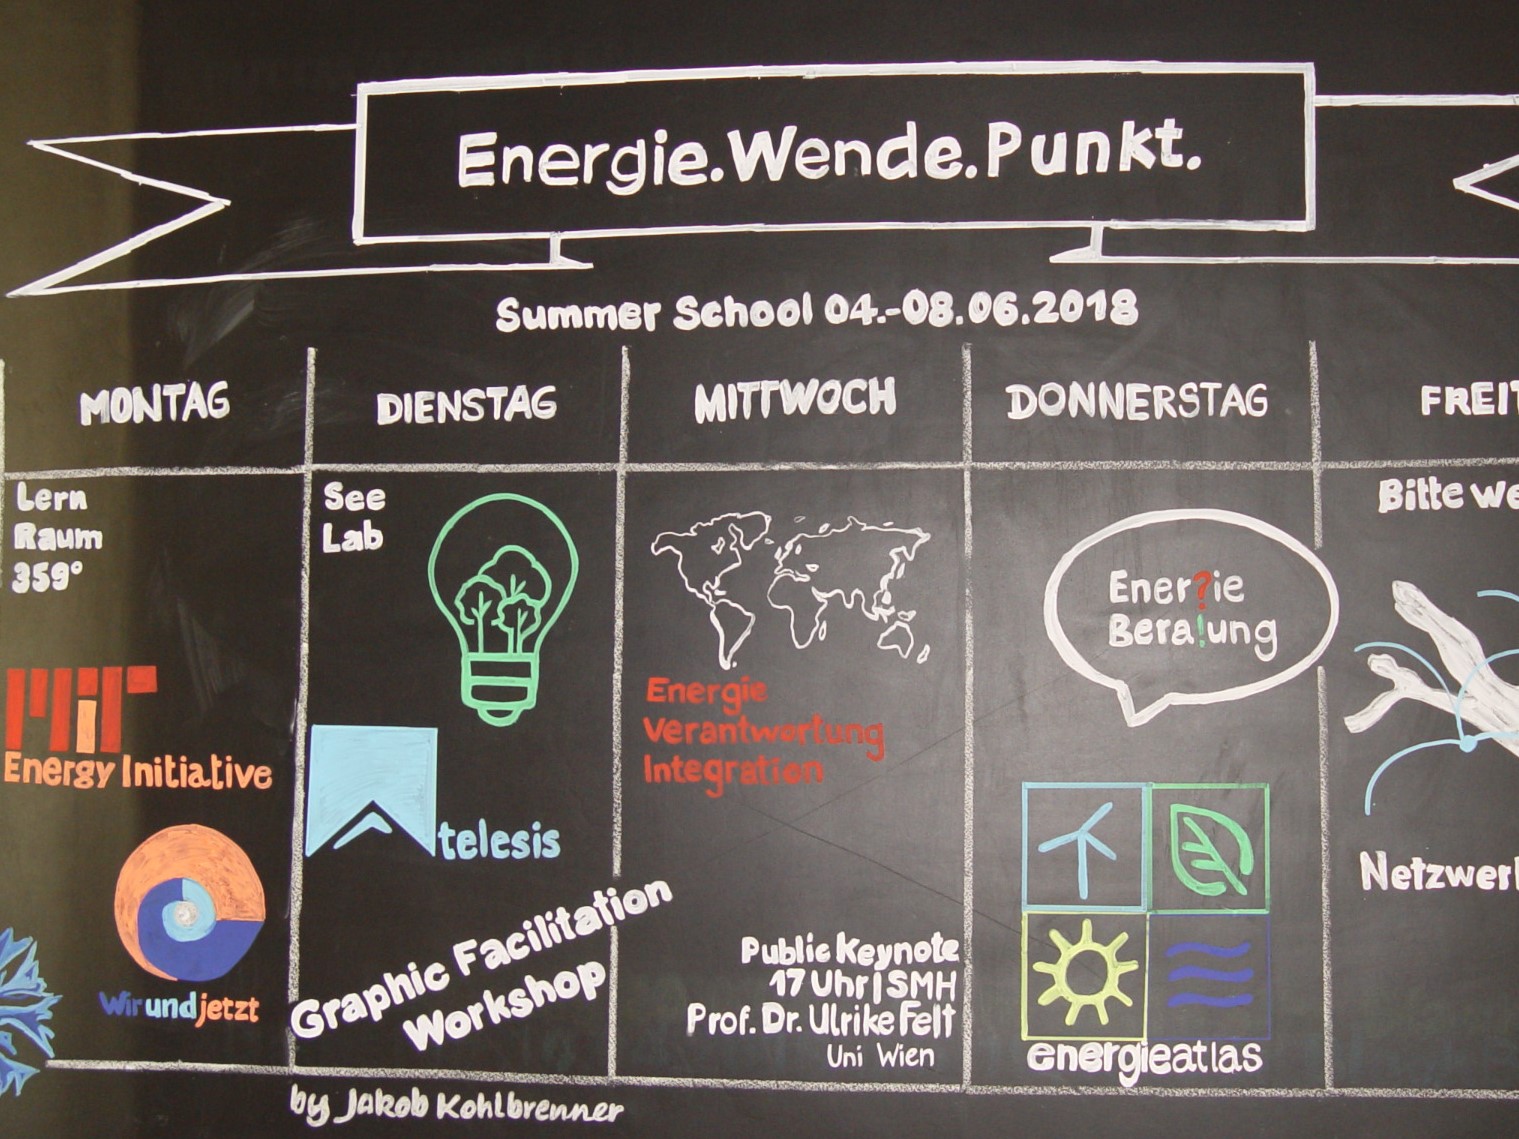 Energie.Wende.Punkt.
Summer School 04.-08.06.2018
MONTAG
DIENSTAG
MITTWOCH
DONNERSTAG
FREIT
Lern
Raum
359°
MIT
Energy Initiative
Wir und jetzt
See
Lab
telesis
Graphic Facilitation
Workshop
by Jakob Kohlbrenner
Energie
Verantwortung
Integration
Public Keynote
17 Uhr | SMH
Prof. Dr. Ulrike Felt
Uni Wien
Ener?ie
Bera!ung
energieatlas
Bitte we
Netzwerk